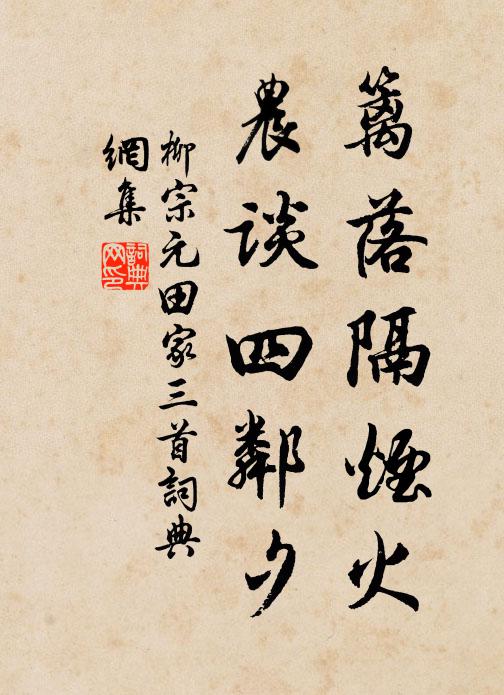 籬落隔煙火
農談四鄰夕
柳宗元田家三首詞典
網集
詞典网印